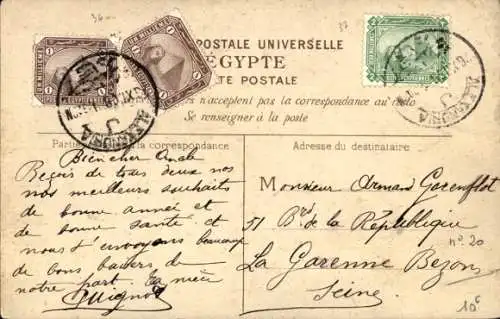 34
37
POSTALE UNIVERSELLE
ÉGYPTE
TE POSTALE
s n'acceptent pas la correspondance au
Se renseigner à la poste
ALEXANDRIA
J
ALEXANDRIA
J
Partie la correspondance
Adresse du destinataire
Bien cher Oncle
Reçois de tous deux nos
nos meilleurs souhaits
de bonne année et
de bonne santé et
nous t'envoyons beaucoup
de bons baisers de
notre part. Ta nièce
Mignot
Monsieur Armand Gorenflot
51 Bd de la République
nº 20
La Garenne Bezons
Seine.
10c